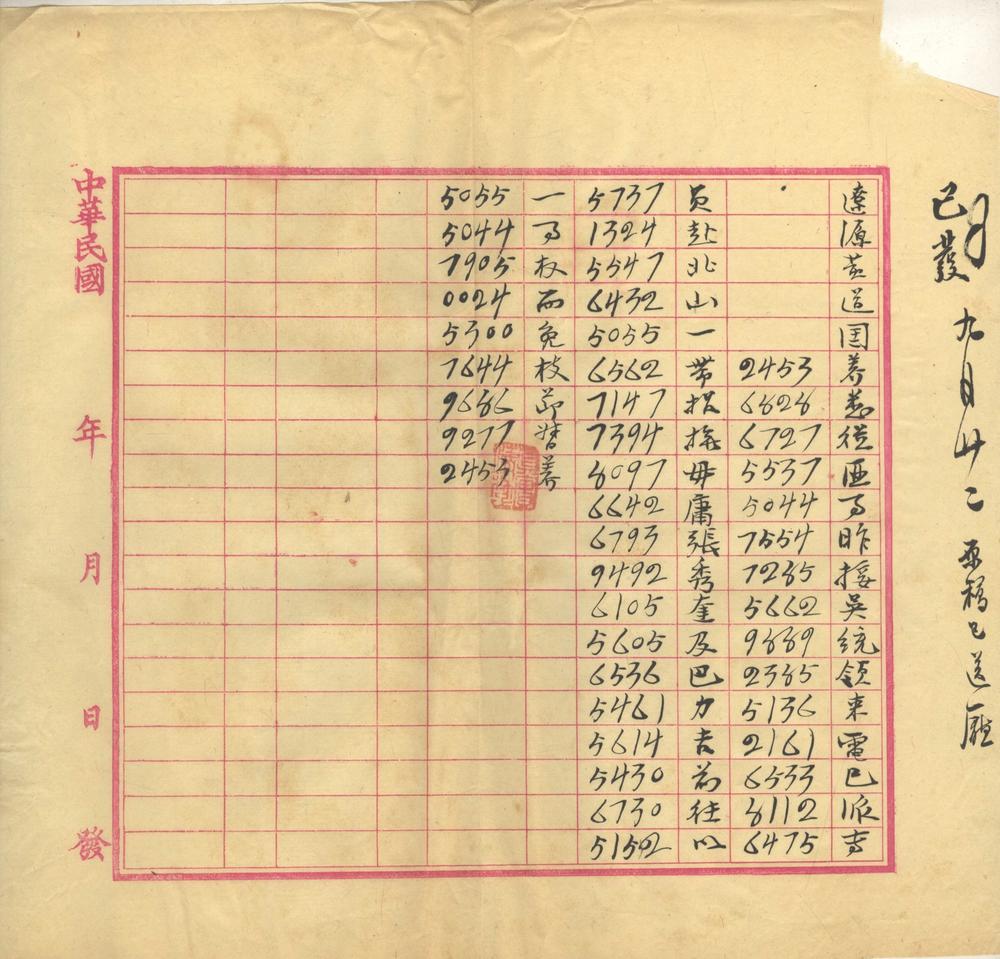 已發 九月廿二 原稿已送
遼源道養悉事昨接吳統領來電已派專
2453
6828
6727
5537
5044
7554
7285
5662
9889
2385
5136
2161
6533
8112
6475
員赴北山一帶招撫毋庸張秀奎及巴力吉前往以
5737
1324
5547
6432
5055
6562
7147
7394
8097
6642
6793
9492
6105
5605
6536
5461
5614
5430
6730
5152
一事权而免枝節養
5055
5044
7905
0024
5300
7644
9686
9277
2453
中華民國 年 月 日 發